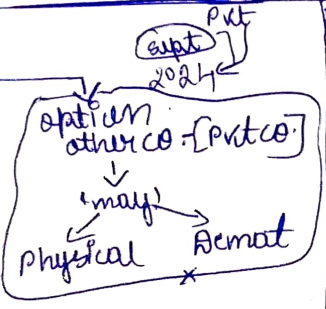 Pvt
Sept
2024
option
other co. - [Pvt co.]
'may'
Physical Demat